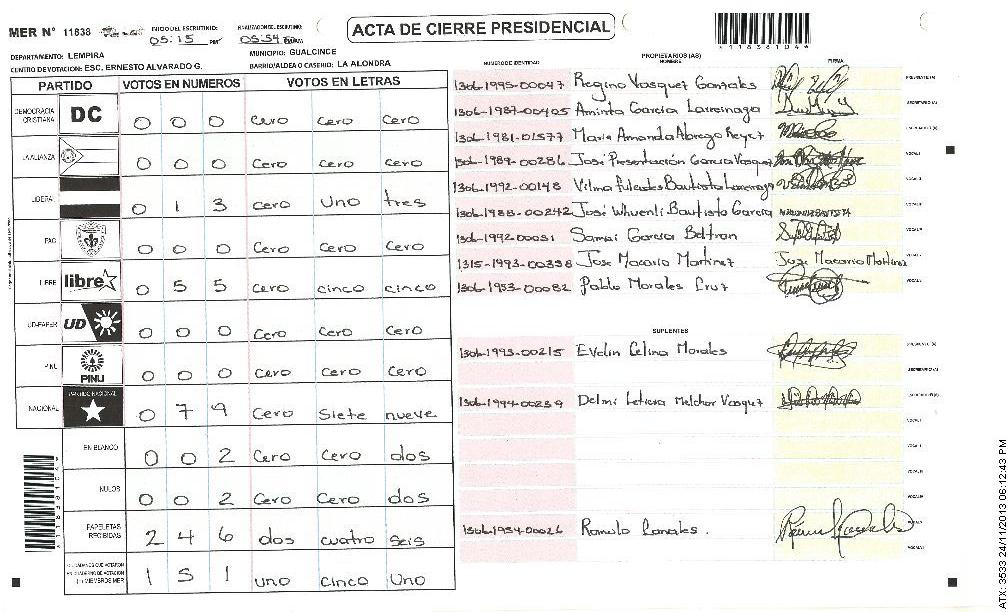 MER N° 11838
INICIO DEL ESCRUTINIO:
05:15 PM
FINALIZACION DEL ESCRUTINIO:
05:54
ACTA DE CIERRE PRESIDENCIAL
DEPARTAMENTO: LEMPIRA
MUNICIPIO: GUALCINCE
CENTRO DE VOTACION: ESC. ERNESTO ALVARADO G.
BARRIO/ALDEA O CASERIO: LA ALONDRA
PARTIDO VOTOS EN NUMEROS VOTOS EN LETRAS
DEMOCRACIA CRISTIANA DC 0 0 0 Cero Cero Cero
LA ALIANZA 0 0 0 Cero Cero Cero
LIBERAL 0 1 3 Cero Uno tres
PAC 0 0 0 Cero Cero Cero
LIBRE libre 0 5 5 Cero cinco cinco
UD-FAPER UD 0 0 0 Cero Cero Cero
PINU PINU 0 0 0 Cero Cero Cero
NACIONAL PARTIDO NACIONAL 0 7 9 Cero Siete nueve
EN BLANCO 0 0 2 Cero Cero dos
NULOS 0 0 2 Cero Cero dos
PAPELETAS RECIBIDAS 2 4 6 dos cuatro seis
CIUDADANOS QUE VOTARON EN CUADERNO DE VOTACION (+) MIEMBROS MER 1 5 1 uno cinco Uno
PROPIETARIOS (AS)
NUMERO DE IDENTIDAD NOMBRE FIRMA
1306-1995-00047 Regino Vasquez Gonzales PRESIDENTE (A)
1306-1987-00405 Aminta Garcia Lareinaga SECRETARIO (A)
1306-1981-01577 Maria Amanda Abrego Reyes
1306-1989-00286 José Presentación Garcia Vasquez VOCAL I
1306-1992-00148 Vilma Bautista Lareinaga
1306-1988-00242 José Bautista Garcia
1306-1992-00051 Samai Garcia Beltran
1315-1993-00398 Jose Macario Martinez Jose Macario Martinez
1306-1953-00082 Pablo Morales Cruz
SUPLENTES
1306-1993-00215 Evelin Celina Morales PRESIDENTE (A)
SECRETARIO (A)
1306-1994-00239 Delmi Leticia Melchor Vasquez
1306-1954-00026 Romulo Canales.
ATX: 3533 24/11/2013 06:12:43 PM